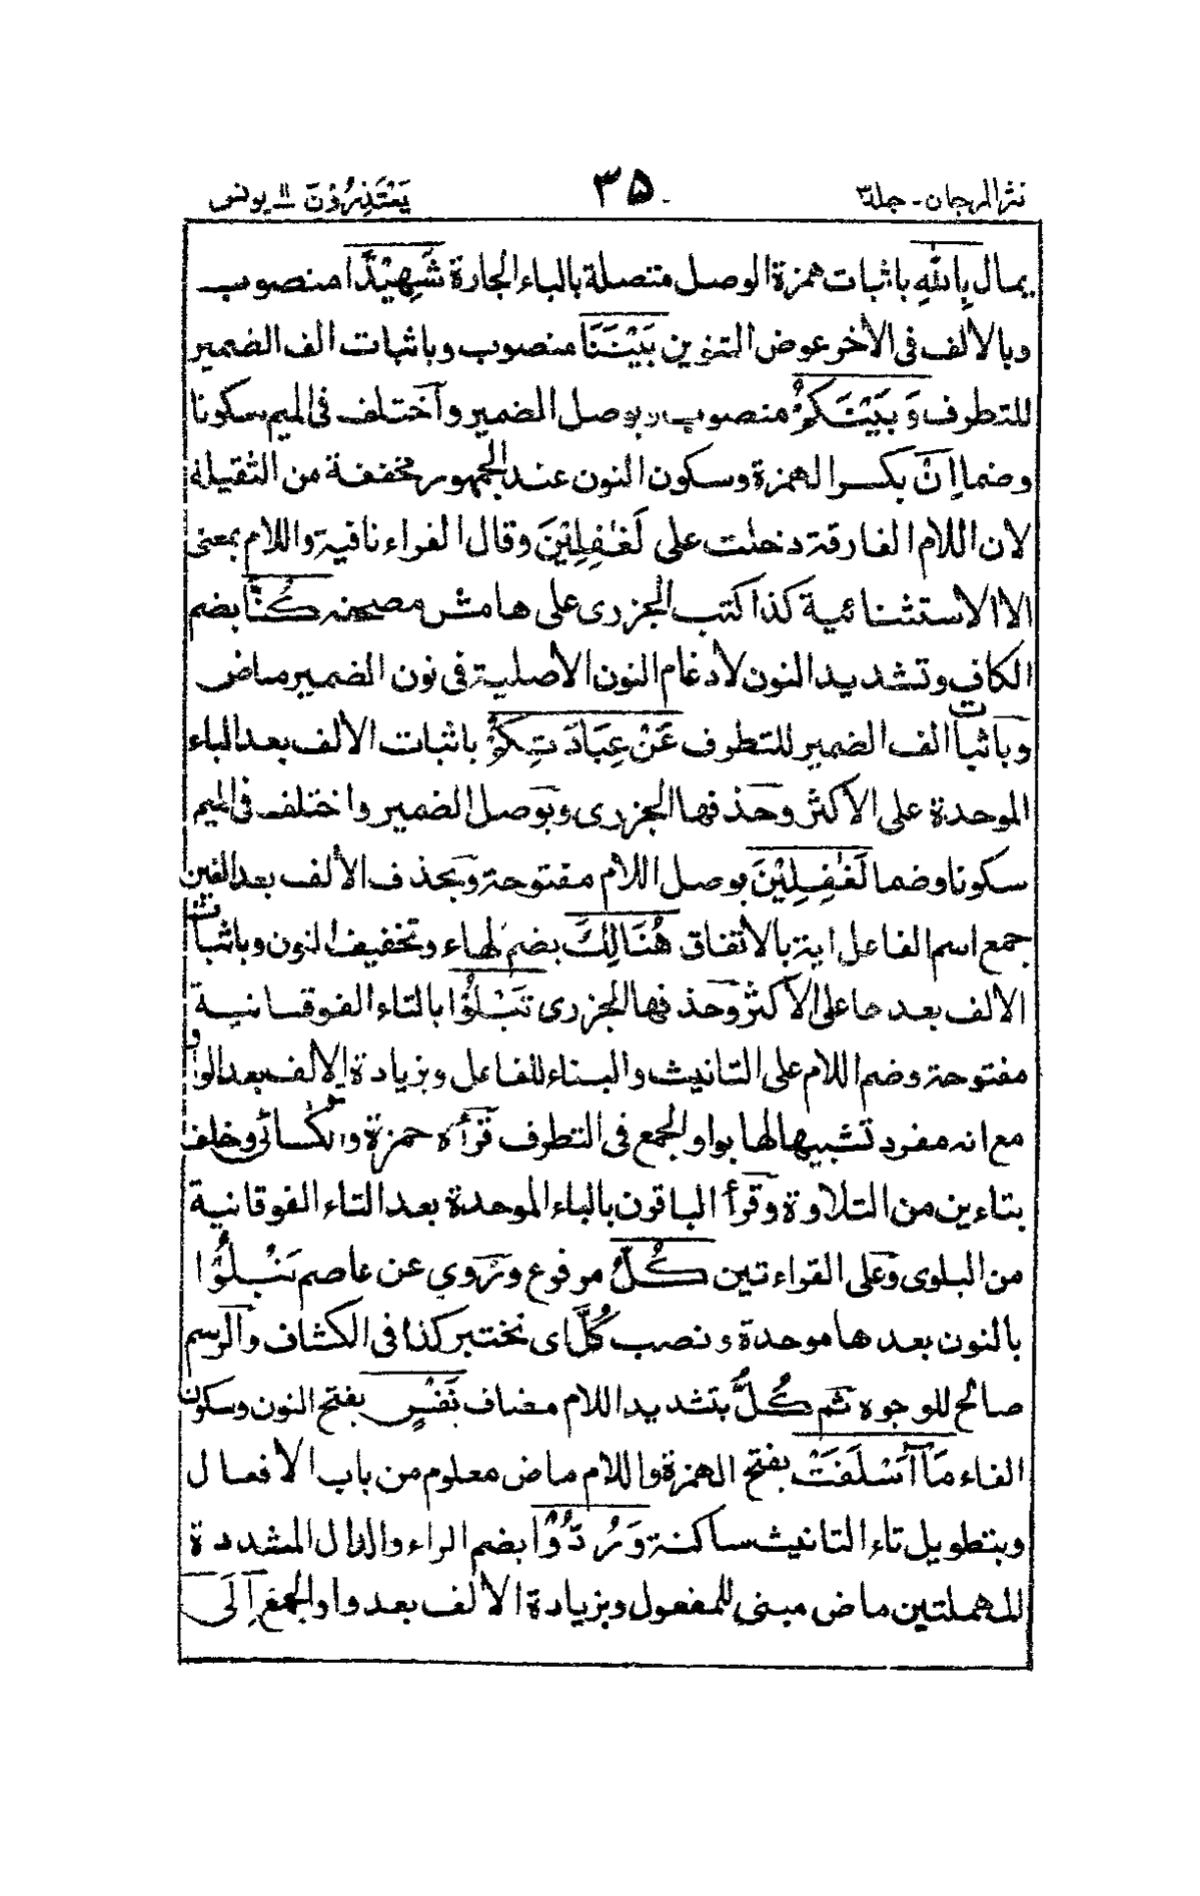 نثر المرجان - جلد ٣
٣٥
يَعْتَذِرُوْنَ ١١ يونس
يمال بِاللّٰهِ باثبات همزة الوصل متصلة بالباء الجارة شَهِيْدًا منصوب
وبالألف فى الأخر عوض التنوين بَيْنَنَا منصوب وباثبات الف الضمير
للتطرف وَبَيْنَكُمْ منصوب وبوصل الضمير وآختلف فى الميم سكونا
وضما اِنْ بكسر الهمزة وسكون النون عند الجمهور مخففة من الثقيلة
لان اللام الفارقة دخلت على لَغٰفِلِيْنَ وقال الفراء نافية واللام بمعنى
الا الاستثنائية كذا كتب الجزرى على هامش مصحفه كُنَّا بضم
الكاف وتشديد النون لأدغام النون الأصلية فى نون الضمير ماض
وباثبات الف الضمير للتطرف عَنْ عِبَادَتِكُمْ باثبات الألف بعد الباء
الموحدة على الأكثر وحذفها الجزرى وبوصل الضمير واختلف فى الميم
سكونا وضما لَغٰفِلِيْنَ بوصل اللام مفتوحة وبحذف الألف بعد الغين
جمع اسم الفاعل اية بالأتفاق هُنَالِكَ بضم الهاء وتخفيف النون وباثبات
الالف بعدها على الأكثر وحذفها الجزرى تَبْلُوْا بالتاء الفوقانية
مفتوحة وضم اللام على التانيث والبناء للفاعل وبزيادة الألف بعد الواو
مع انه مفرد تشبيها لها بواو الجمع فى التطرف قرأه حمزة والكسائى وخلف
بتاءين من التلاوة وقرأ الباقون بالباء الموحدة بعد التاء الفوقانية
من البلوى وعلى القراءتين كُلُّ مرفوع ورُوى عن عاصم نَبْلُوْا
بالنون بعدها موحدة ونصب كُلَّ اى نختبر كذا فى الكشاف والرسم
صالح للوجوه ثم كُلُّ بتشديد اللام مضاف نَفْسٍ بفتح النون وسكون
الفاء مَآ اَسْلَفَتْ بفتح الهمزة واللام ماض معلوم من باب الأفعال
وبتطويل تاء التانيث ساكنة وَرُدُّوْا بضم الراء والدال المشددة
المهملتين ماض مبنى للمفعول وبزيادة الألف بعد واو الجمع اِلَى